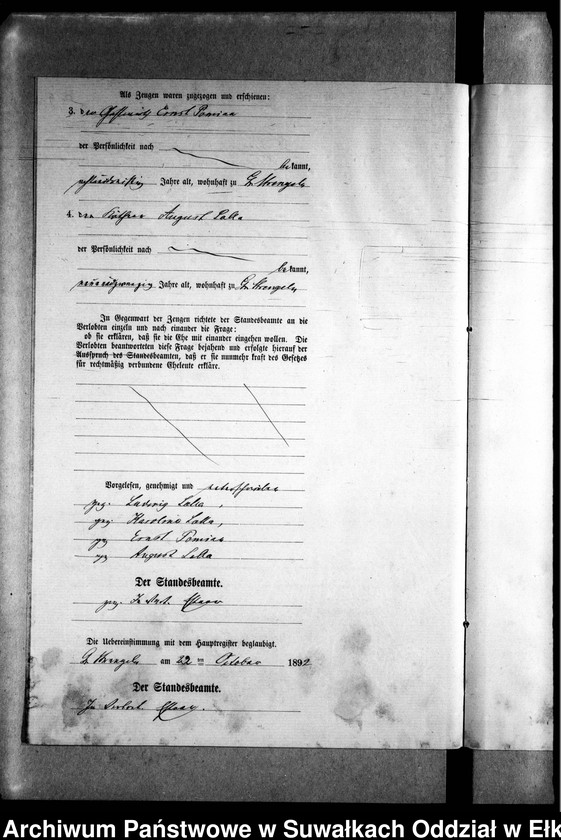 Als Zeugen waren zugezogen und erschienen:
3. den Ernst Pomian
der Persönlichkeit nach
bekannt,
Jahre alt, wohnhaft zu Gr. Strengeln
4. den Käthner August Lalla
der Persönlichkeit nach
bekannt,
neunundzwanzig Jahre alt, wohnhaft zu Gr. Strengeln
In Gegenwart der Zeugen richtete der Standesbeamte an die
Verlobten einzeln und nach einander die Frage:
ob sie erklären, daß sie die Ehe mit einander eingehen wollen. Die
Verlobten beantworteten diese Frage bejahend und erfolgte hierauf der
Ausspruch des Standesbeamten, daß er sie nunmehr kraft des Gesetzes
für rechtmäßig verbundene Eheleute erkläre.
Vorgelesen, genehmigt und unterschrieben
gez. Ludwig Lalla,
gez. Karoline Lalla,
gez. Ernst Pomian
gez. August Lalla
Der Standesbeamte.
gez. In Vert.
Die Uebereinstimmung mit dem Hauptregister beglaubigt.
Gr. Strengeln am 22ten October 1892
Der Standesbeamte.
In Vertret.
Archiwum Państwowe w Suwałkach Oddział w Ełk